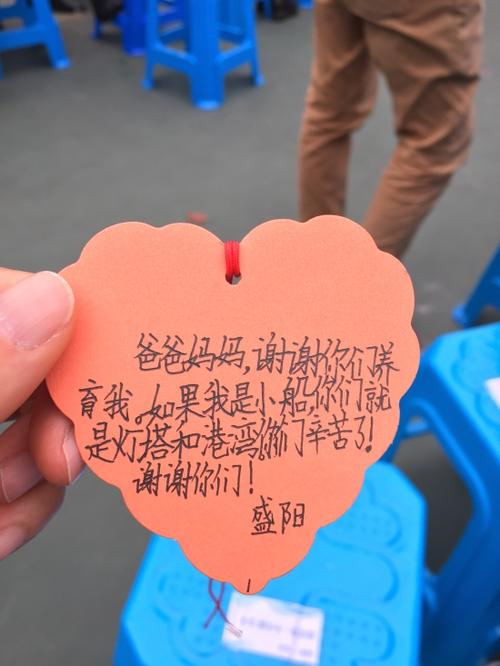 爸爸妈妈,谢谢你们养
育我。如果我是小船,你们就
是灯塔和港湾你们辛苦了!
谢谢你们!
盛阳